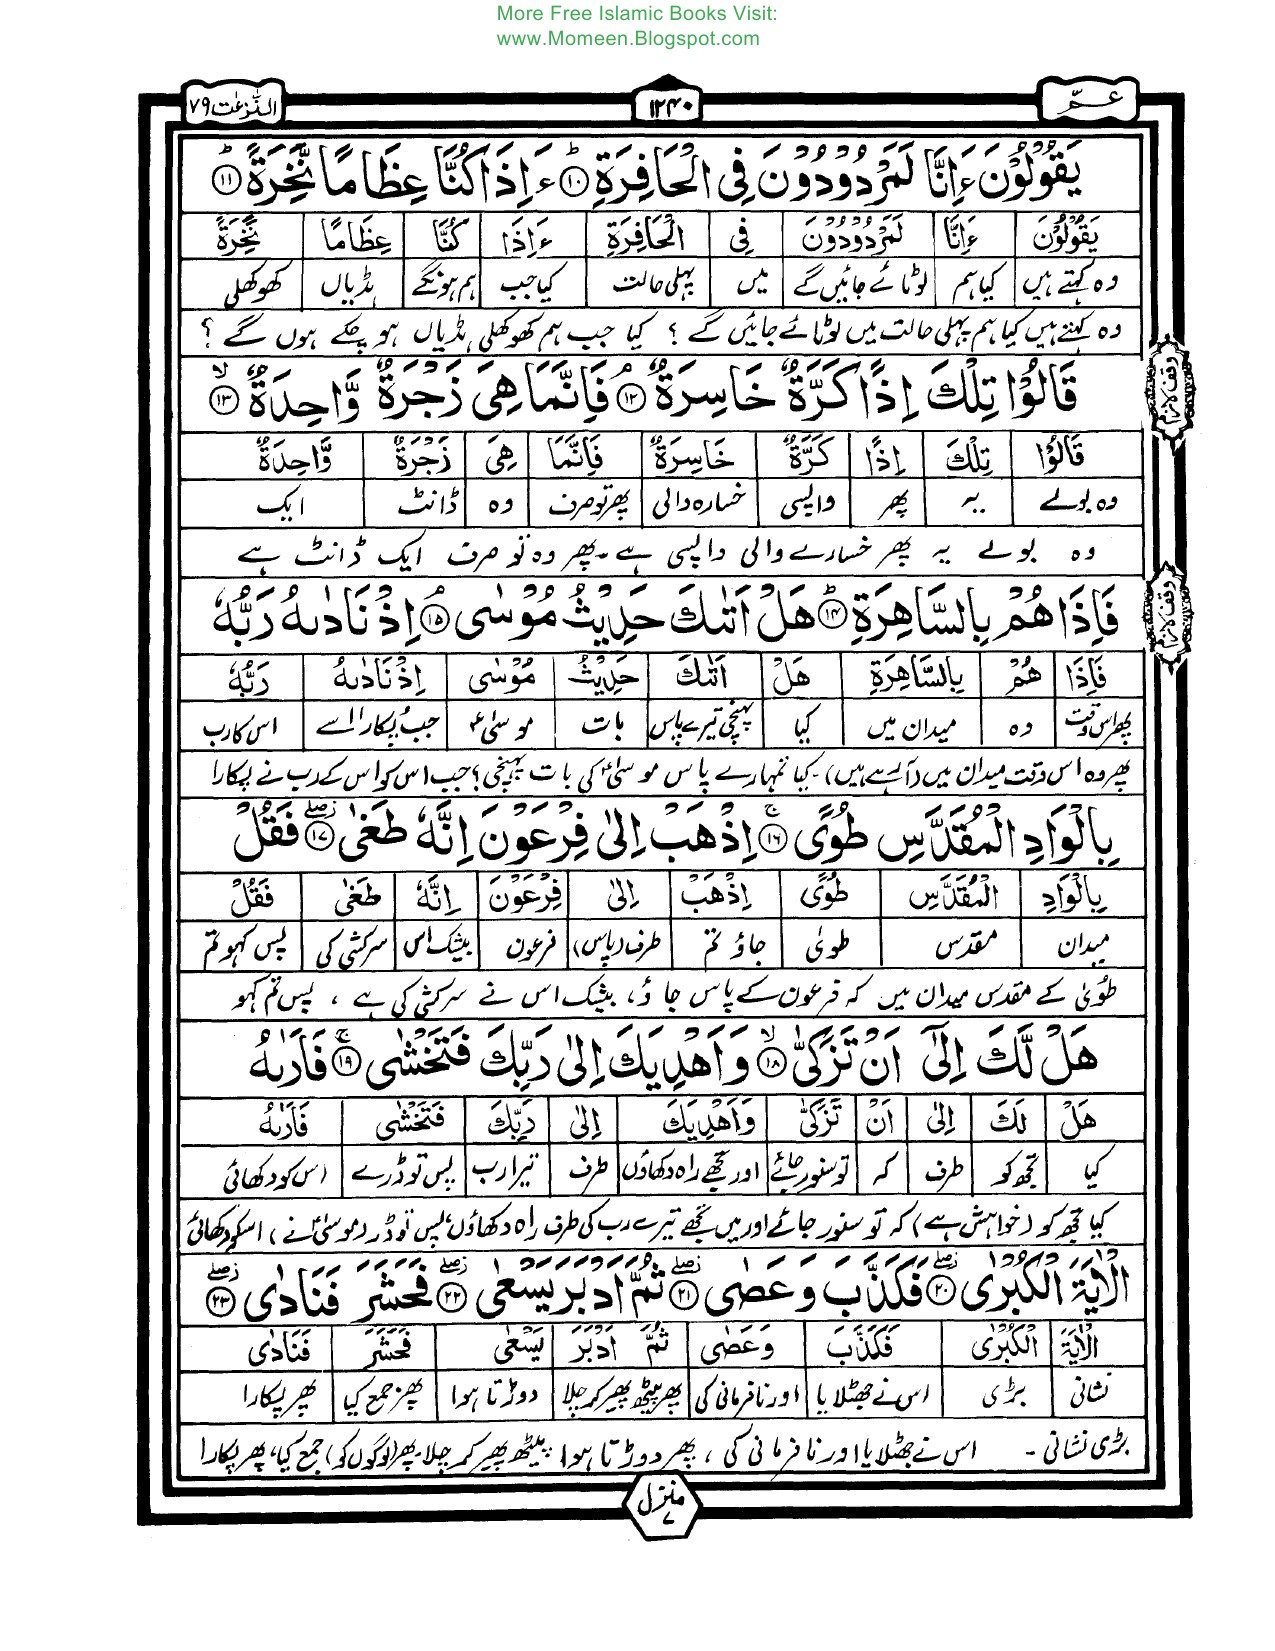 More Free Islamic Books Visit:
www.Momeen.Blogspot.com
عـمّ ۱۲۴۰ النّٰزعٰت ۷۹
يَقُوْلُوْنَ ءَاِنَّا لَمَرْدُوْدُوْنَ فِى الْحَافِرَةِ ؕ۱۰ ءَاِذَا كُنَّا عِظَامًا نَّخِرَةً ؕ۱۱
يَقُوْلُوْنَ ءَاِنَّا لَمَرْدُوْدُوْنَ فِى الْحَافِرَةِ ءَاِذَا كُنَّا عِظَامًا نَّخِرَةً
وہ کہتے ہیں کیا ہم لوٹائے جائیں گے میں پہلی حالت کیا جب ہم ہونگے ہڈیاں کھوکھلی
وہ کہتے ہیں کیا ہم پہلی حالت میں لوٹائے جائیں گے ؟ کیا جب ہم کھوکھلی ہڈیاں ہو چکے ہوں گے ؟
قَالُوْا تِلْكَ اِذًا كَرَّةٌ خَاسِرَةٌ ۘ۱۲ فَاِنَّمَا هِىَ زَجْرَةٌ وَّاحِدَةٌ ۙ۱۳
وقف لازم
قَالُوْا تِلْكَ اِذًا كَرَّةٌ خَاسِرَةٌ فَاِنَّمَا هِىَ زَجْرَةٌ وَّاحِدَةٌ
وہ بولے یہ پھر واپسی خسارہ والی پھر تو صرف وہ ڈانٹ ایک
وہ بولے یہ پھر خسارے والی واپسی ہے۔ پھر وہ تو صرف ایک ڈانٹ ہے
فَاِذَا هُمْ بِالسَّاهِرَةِ ؕ۱۴ هَلْ اَتٰىكَ حَدِيْثُ مُوْسٰى ۘ۱۵ اِذْ نَادٰىهُ رَبُّهٗ
وقف لازم
فَاِذَا هُمْ بِالسَّاهِرَةِ هَلْ اَتٰىكَ حَدِيْثُ مُوْسٰى اِذْ نَادٰىهُ رَبُّهٗ
پھر اس وقت وہ میدان میں کیا پہنچی تیرے پاس بات موسیٰؑ جب پکارا اسے اس کا رب
پھر وہ اس وقت میدان میں (آ رہے ہیں)۔ کیا تمہارے پاس موسیٰؑ کی بات پہنچی؟ جب اس کو اس کے رب نے پکارا
بِالْوَادِ الْمُقَدَّسِ طُوًى ۚ۱۶ اِذْهَبْ اِلٰى فِرْعَوْنَ اِنَّهٗ طَغٰى ۖ۱۷ فَقُلْ
بِالْوَادِ الْمُقَدَّسِ طُوًى اِذْهَبْ اِلٰى فِرْعَوْنَ اِنَّهٗ طَغٰى فَقُلْ
میدان مقدس طویٰ جاؤ تم طرف (پاس) فرعون بیشک اس سرکشی کی پس کہو تم
طُویٰ کے مقدس میدان میں کہ فرعون کے پاس جاؤ، بیشک اس نے سرکشی کی ہے ، پس تم کہو
هَلْ لَّكَ اِلٰٓى اَنْ تَزَكّٰى ۙ۱۸ وَاَهْدِيَكَ اِلٰى رَبِّكَ فَتَخْشٰى ۚ۱۹ فَاَرٰىهُ
هَلْ لَكَ اِلٰى اَنْ تَزَكّٰى وَاَهْدِيَكَ اِلٰى رَبِّكَ فَتَخْشٰى فَاَرٰىهُ
کیا تجھ کو طرف کہ تو سنور جائے اور تجھے راہ دکھاؤں طرف تیرا رب پس تو ڈرے اس کو دکھائی
کیا تجھ کو (خواہش ہے) کہ تو سنور جائے اور میں تجھے تیرے رب کی طرف راہ دکھاؤں، پس تو ڈر (موسیٰؑ نے) اسکو دکھائی
الْاٰيَةَ الْكُبْرٰى ۖ۲۰ فَكَذَّبَ وَعَصٰى ۖ۲۱ ثُمَّ اَدْبَرَ يَسْعٰى ۖ۲۲ فَحَشَرَ فَنَادٰى ۖ۲۳
الْاٰيَةَ الْكُبْرٰى فَكَذَّبَ وَعَصٰى ثُمَّ اَدْبَرَ يَسْعٰى فَحَشَرَ فَنَادٰى
نشانی بڑی اس نے جھٹلایا اور نافرمانی کی پھر پیٹھ پھیر کر چلا دوڑتا ہوا پھر جمع کیا پھر پکارا
بڑی نشانی ۔ اس نے جھٹلایا اور نافرمانی کی ، پھر دوڑتا ہوا پیٹھ پھیر کر چلا۔ پھر (لوگوں کو) جمع کیا، پھر پکارا
منزل ۷